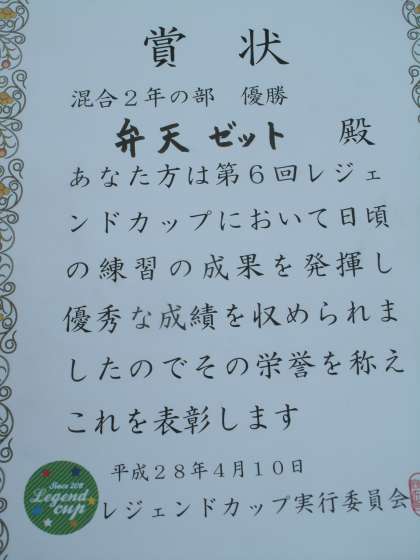 賞状
混合２年の部　優勝
弁天ゼット　殿
あなた方は第６回レジェ
ンドカップにおいて日頃
の練習の成果を発揮し
優秀な成績を収められま
したのでその栄誉を称え
これを表彰します
平成２８年４月１０日
Since 2011
Legend
cup
レジェンドカップ実行委員会